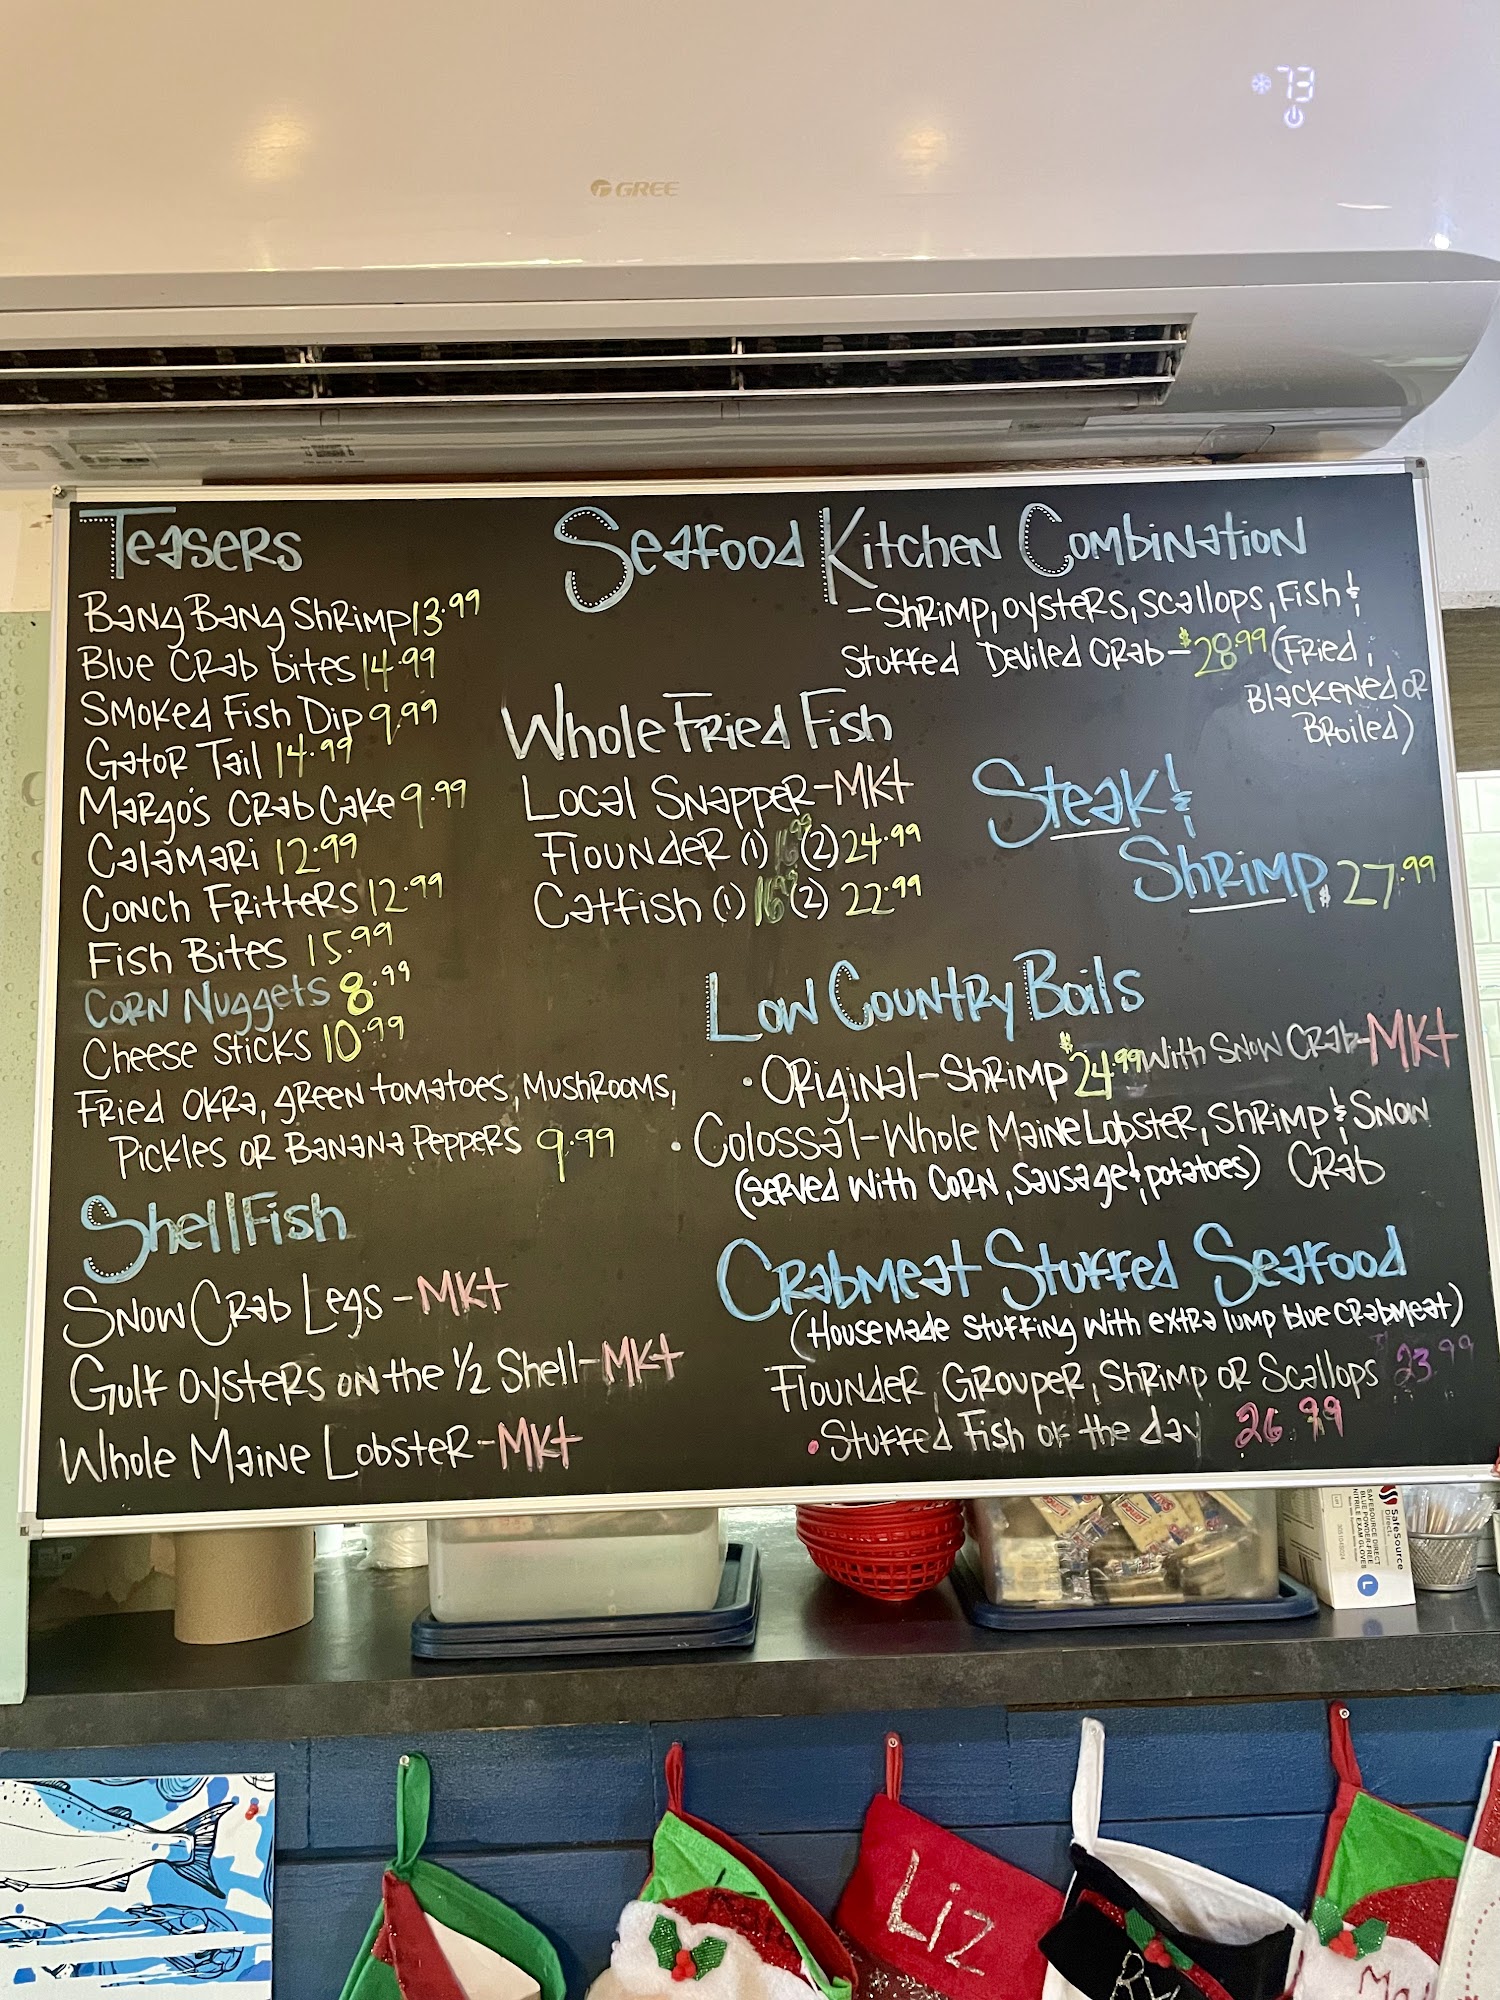 73
GREE
Teasers
Bang Bang Shrimp 13.99
Blue Crab bites 14.99
Smoked Fish Dip 9.99
Gator Tail 14.99
Margo's Crab Cake 9.99
Calamari 12.99
Conch Fritters 12.99
Fish Bites 15.99
Corn Nuggets 8.99
Cheese Sticks 10.99
Fried Okra, green tomatoes, Mushrooms,
Pickles or Banana Peppers 9.99
Shellfish
Snow Crab Legs - MKt
Gulf oysters on the 1/2 Shell - MKt
Whole Maine Lobster - MKt
Seafood Kitchen Combination
- Shrimp, oysters, scallops, Fish &
Stuffed Deviled Crab - $28.99 (Fried,
Blackened or
Broiled)
Whole Fried Fish
Local Snapper - MKt
Flounder (1) 16.99 (2) 24.99
Catfish (1) 16.99 (2) 22.99
Steak &
Shrimp $27.99
Low Country Boils
• Original - Shrimp $24.99 with Snow Crab - MKt
• Colossal - Whole Maine Lobster, Shrimp & Snow
(served with Corn, Sausage & potatoes) Crab
Crabmeat Stuffed Seafood
(Housemade stuffing with extra lump blue crabmeat)
Flounder, Grouper, Shrimp or Scallops $23.99
• Stuffed Fish of the day 26.99
SafeSource
Direct
SAFESOURCE DIRECT
BLUE POWDER-FREE
NITRILE EXAM GLOVES
L
Liz